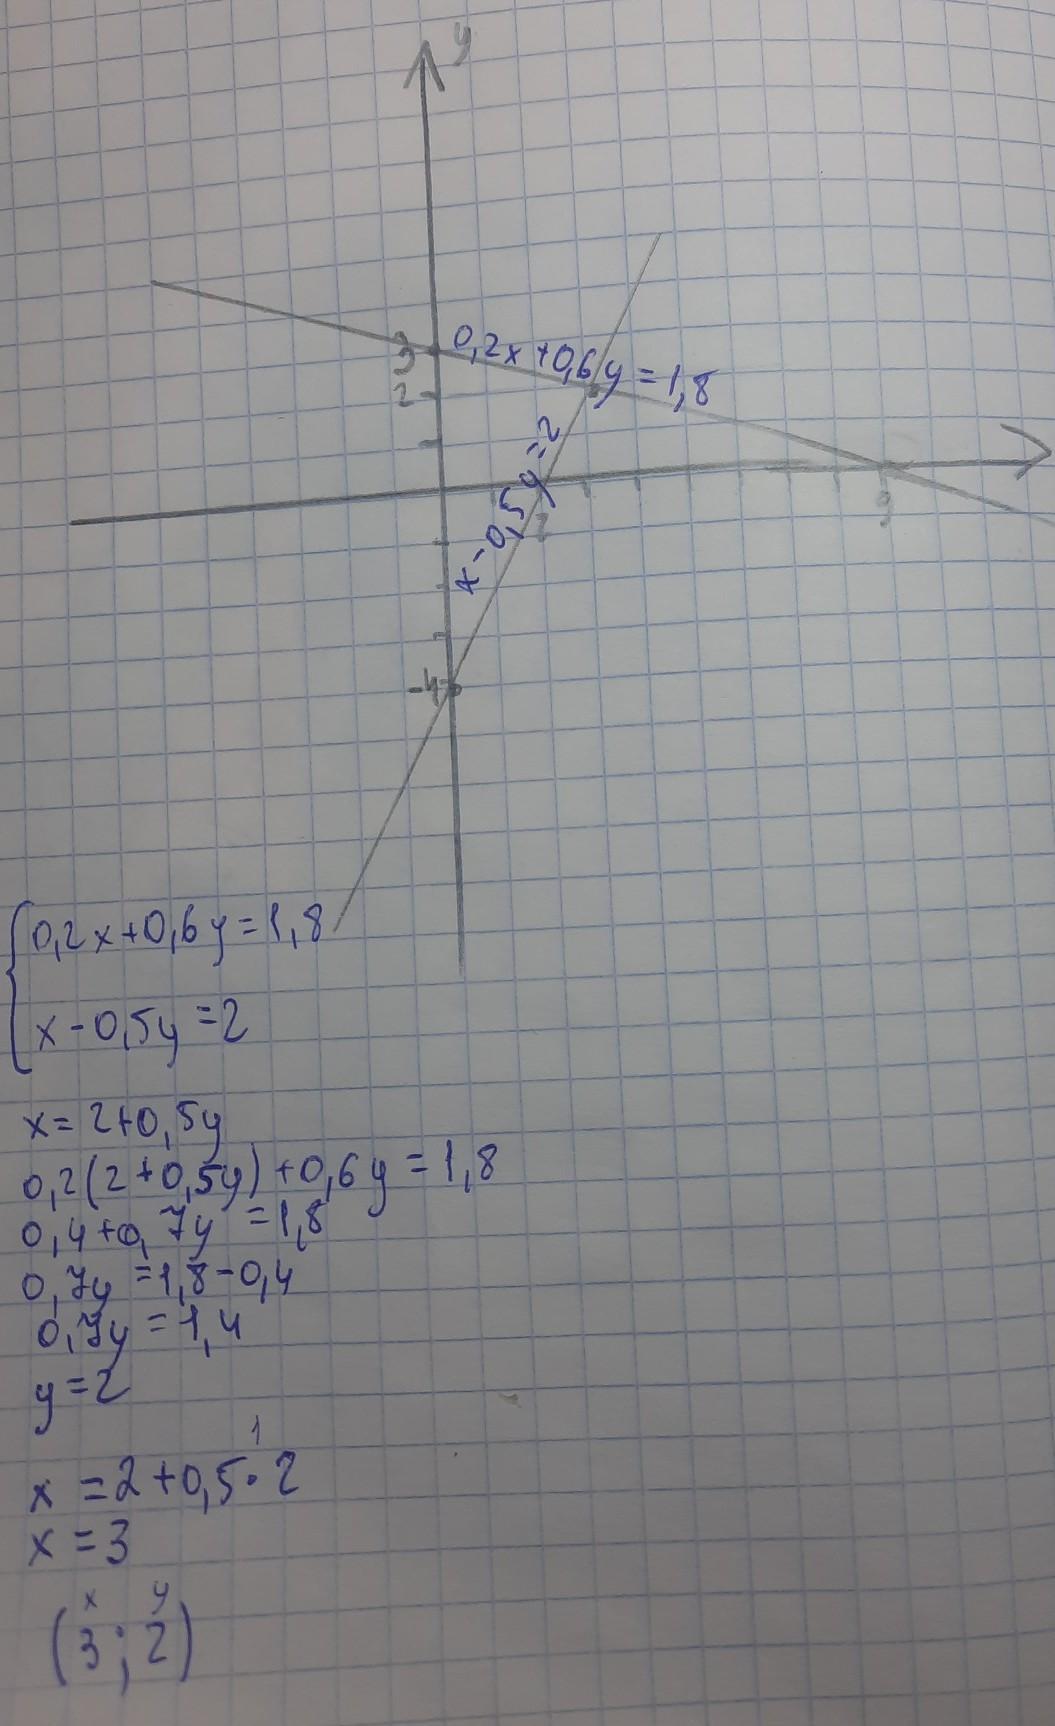 y
3
0,2x+0,6y=1,8
2
x-0,5y=2
2
9
-4
0,2x+0,6y=1,8
x-0,5y=2
x=2+0,5y
0,2(2+0,5y)+0,6y=1,8
0,4+0,7y=1,8
0,7y=1,8-0,4
0,7y=1,4
y=2
1
x=2+0,5·2
x=3
x y
(3;2)